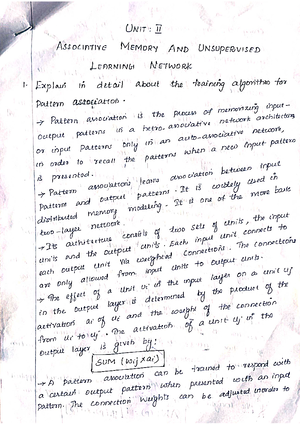 UNIT: II
ASSOCIATIVE MEMORY AND UNSUPERVISED
LEARNING NETWORK
1. Explain in detail about the training algorithm for
Pattern association.
→ Pattern association is the process of memorizing input-
output patterns in a hetro-associative network architecture
or input Patterns only in an auto-associative network,
in order to recall the patterns when a new input pattern
is presented.
→ Pattern associations learns association between input
Patterns and output patterns. It is widely used in
distributed memory modeling. It is one of the more basic
two-layer network.
→ Its architecture consists of two sets of units, the input
units and the output units. Each input unit connects to
each output unit via weighted connections. The connections
are only allowed from input units to output units.
→ The effect of a unit ui in the input layer on a unit uj
in the output layer is determined by the product of the
activation ai of ui and the weight of the connection
from ui to uj. The activation of a unit uj in the
output layer is given by:
SUM (wij x ai)
→ A pattern association can be trained to respond with
a certain output pattern when presented with an input
pattern. The connection weights can be adjusted inorder to